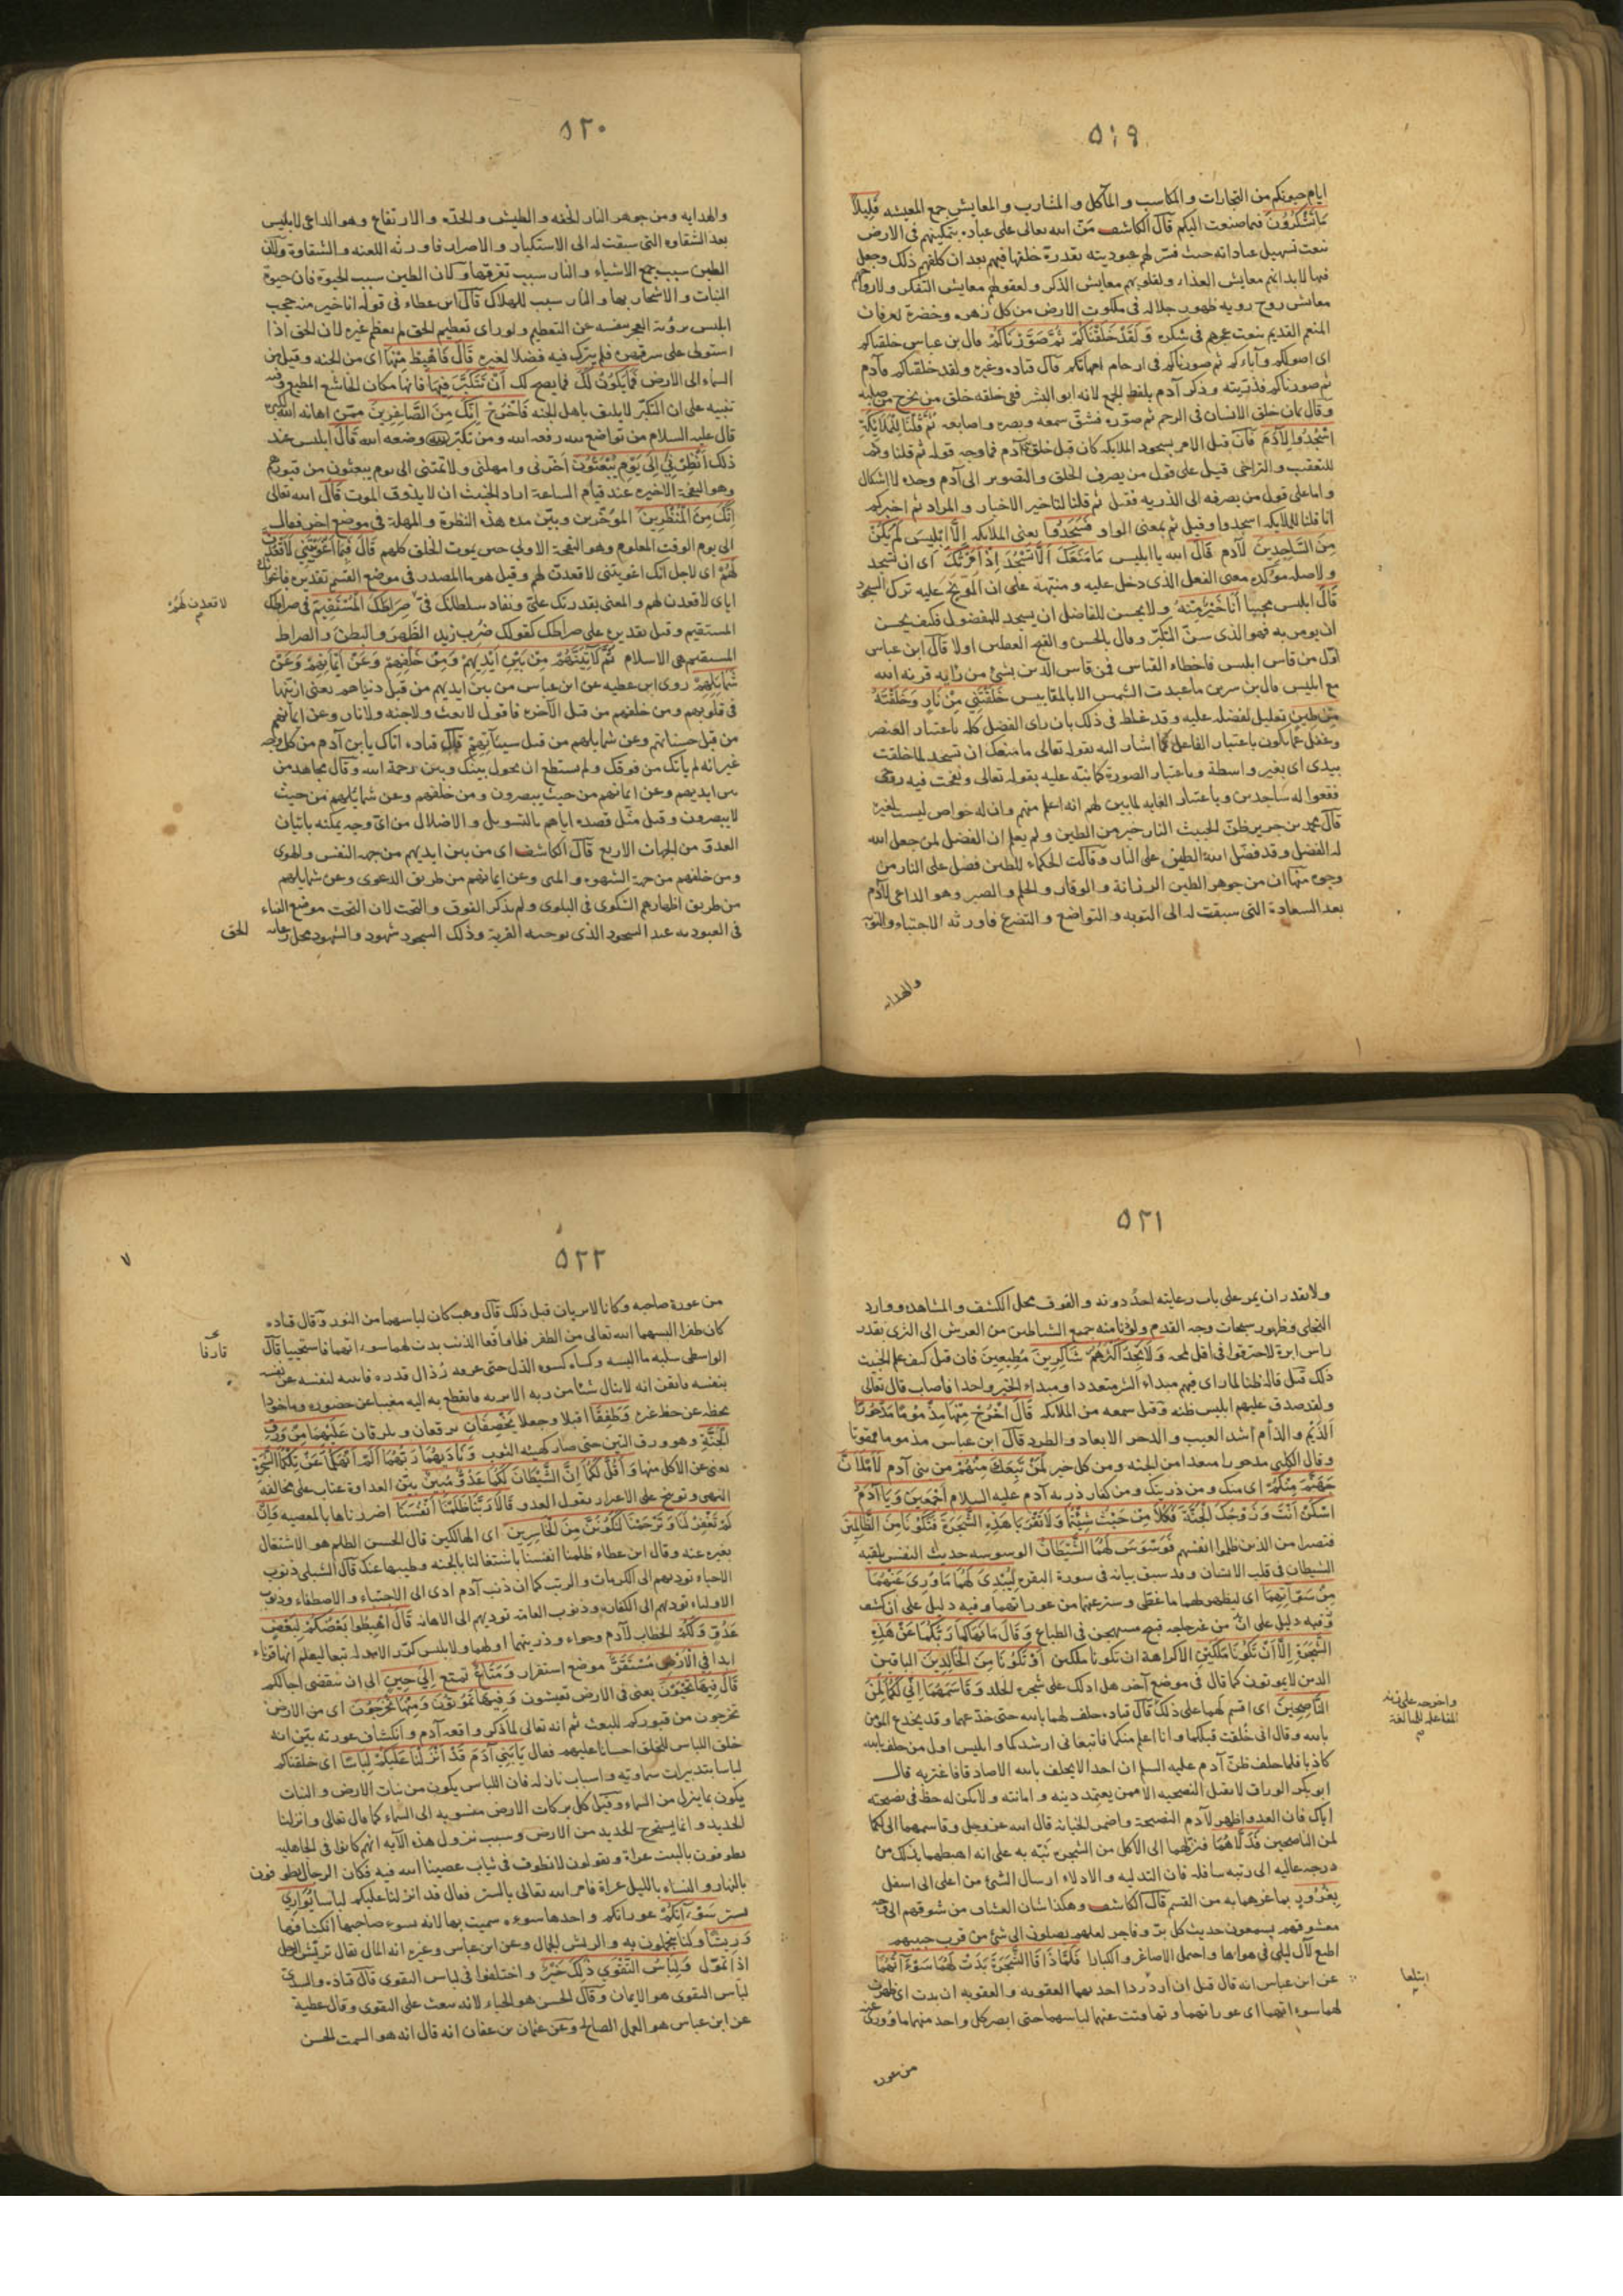 ٥١٩
ايام حيوتكم من التجارات والمكاسب والمآكل والمشارب والمعايش جمع المعيشه قليلا
ما تشكرون فيما صنعت اليكم قال الكاشف منّ الله تعالى على عباده بتمكينهم فى الارض
فيها لابدانهم معايش الغذاء ولقلوبهم معايش الذكر ولعقولهم معايش التفكر ولارواحهم
معايش روح رويه ظهور جلاله فى ملكوت الارض من كل زهره وخضرة لعرفان
المنعم القديم بنعت عجزهم فى شكره ولقد خلقناكم ثم صورناكم قال بن عباس خلقناكم
اى اصولكم وآباءكم ثم صورناكم فى ارحام امهاتكم قال قتاده وغيره ولقد خلقناكم فآدم
ثم صورناكم فذريته وذكر آدم بلفظ الجمع لانه ابو البشر ففى خلقه خلق من يخرج من صلبه
وقال يمان خلق الانسان فى الرحم ثم صوره فشق سمعه وبصره واصابعه ثم قلنا للملايكة
اسجدوا لآدم فان قيل الامر بسجود الملايكه كان قبل خلق آدم فما وجه قوله ثم قلنا وثم
للتعقيب والتراخى قيل على قول من يصرف الخلق والتصوير الى آدم وحده لا اشكال
واما على قول من يصرفه الى الذريه فقيل ثم قلنا لتاخير الاخبار والمراد ثم اخبركم
انا قلنا للملايكه اسجدوا وقيل ثم بمعنى الواو فسجدوا يعنى الملايكه الا ابليس لم يكن
من الساجدين لآدم قال الله يا ابليس ما منعك الا تسجد اذ امرتك اى ان تسجد
ولا صله مؤكده معنى الفعل الذى دخل عليه ومنبهة على ان الموبخ عليه ترك السجود
قال ابليس مجيبا انا خير منه ولا يحسن للفاضل ان يسجد للمفضول فكيف يحسن
ان يومر به فهو الذى سن التكبر وقال بالحسن والقبح العقلين اولا قال ابن عباس
اول من قاس ابليس فاخطاء القياس فمن قاس الدين بشئ من رايه قرنه الله
مع ابليس قال بن سرين ما عبدت الشمس الا بالمقاييس خلقتنى من نار وخلقته
من طين تعليل لفضله عليه وقد غلط فى ذلك بان راى الفضل كله باعتبار العنصر
وغفل عما يكون باعتبار الفاعل كما اشار اليه بقوله تعالى ما منعك ان تسجد لما خلقت
بيدى اى بغير واسطة وباعتبار الصورة كما نبه عليه بقوله تعالى ونفخت فيه من روحى
فقعوا له ساجدين وباعتبار الغايه لما بين لهم انه اعلم منهم وان له خواص ليست لغيره
قال محمد بن جرير ظن الخبيث النار خير من الطين ولم يعلم ان الفضل لمن جعل الله
له الفضل وقد فضل الله الطين على النار وقالت الحكماء للطين فضل على النار من
وجوه منها ان من جوهر الطين الرزانة والوقار والحلم والصبر وهو الداعى لآدم
بعد السعادة التى سبقت له الى التوبه والتواضع والتضرع فاورثه الاجتباء والتوبه
والهدايه
٥٢٠
والهدايه ومن جوهر النار الخفه والطيش والحدّه والارتفاع وهو الداعى لابليس
بعد الشقاوه التى سبقت له الى الاستكبار والاصرار فاورثه اللعنه والشقاوة ولان
الطين سبب جمع الاشياء والنار سبب تفرقها وكان الطين سبب الحيوة فان حيوة
النبات والاشجار بها والنار سبب للهلاك قال ابن عطاء فى قوله انا خير منه حجب
ابليس برؤية الفخر بنفسه عن التعظيم ولو راى تعظيم الحق لم يعظم غيره لان الحق اذا
استولى على سر قهره فلم يترك فيه فضلا لغيره قال فاهبط منها اى من الجنه وقيل من
السماء الى الارض فما يكون لك فما يصح لك ان تتكبر فيها فانها مكان الخاشع المطيع وفيه
تنبيه على ان التكبر لا يليق باهل الجنه فاخرج انك من الصاغرين ممن اهانه الله لكبره
قال عليه السلام من تواضع لله رفعه الله ومن تكبر وضعه الله قال ابليس عند
ذلك انظرنى الى يوم يبعثون اخرنى وامهلنى ولا تمتنى الى يوم يبعثون من قبورهم
وهو النفخة الاخيره عند قيام الساعة اراد الخبيث ان لا يذوق الموت قال الله تعالى
انك من المنظرين المؤخرين وبيّن مده هذه النظرة والمهلة فى موضع اخر فقال
الى يوم الوقت المعلوم وهو النفخة الاولى حين يموت الخلق كلهم قال فبما اغويتنى لاقعدن
لهم اى لاجل انك اغويتنى لاقعدن لهم وقيل هو ما المصدر فى موضع القسم تقديره فباغوائك
لاقعدن لهم
اياى لاقعدن لهم والمعنى بقدرتك علىّ ونفاد سلطانك فىّ صراطك المستقيم فى صراطك
المستقيم وقيل تقديره على صراطك كقولك ضرب زيد الظهر والبطن والصراط
المستقيم هى الاسلام ثم لآتينهم من بين ايديهم ومن خلفهم وعن ايمانهم وعن
شمايلهم روى ابن عطيه عن ابن عباس من بين ايديهم من قبل دنياهم يعنى ازينها
فى قلوبهم ومن خلفهم من قبل الآخره فاقول لا بعث ولا جنه ولا نار وعن ايمانهم
من قبل حسناتهم وعن شمايلهم من قبل سيئاتهم قال قتاده اتاك يا بن آدم من كل وجه
غير انه لم ياتك من فوقك ولم يستطع ان يحول بينك وبين رحمة الله وقال مجاهد من
بين ايديهم وعن ايمانهم من حيث يبصرون ومن خلفهم وعن شمائلهم من حيث
لا يبصرون وقيل مثّل قصده اياهم بالتسويل والاضلال من اى وجه يمكنه باتيان
العدو من الجهات الاربع قال الكاشف اى من بين ايديهم من جهه النفس والهوى
ومن خلفهم من جهة الشهوه والمنى وعن ايمانهم من طريق الدعوى وعن شمايلهم
من طريق اظهارهم الشكوى فى البلوى ولم يذكر الفوق والتحت لان التحت موضع الفناء
فى العبوديه عند السجود الذى يوجب القربة وذلك السجود شهود والشهود محل رعايه
الحق
٥٢١
ولا يقدر ان يمر على باب رعايته احدٌ دونه والفوق محل الكشف والمشاهده ووارد
التجلى وظهور سبحات وجه القدم ولو دنا منه جميع الشياطين من العرش الى الثرى بقدر
راس ابرة لاحترقوا فى اقل لمحه ولا تجد اكثرهم شاكرين مطيعين فان قيل كيف علم الخبيث
ذلك قيل قاله ظنا لما راى فيهم مبداء الشر متعددا ومبداء الخير واحدا فاصاب قال تعالى
ولقد صدق عليهم ابليس ظنه وقيل سمعه من الملايكه قال اخرج منها مذموما مدحورا
الذيم والذأم اشد العيب والدحر الابعاد والطرد قال ابن عباس مذموما ممقوتا
وقال الكلبى مدحورا مبعدا من الجنه ومن كل خير لمن تبعك منهم من بنى آدم لاملان
جهنم منكم اى منك ومن ذريتك ومن كفار ذريه آدم عليه السلام اجمعين ويا آدم
اسكن انت وزوجك الجنة فكلا من حيث شئتما ولا تقربا هذه الشجرة فتكونا من الظالمين
فتصيرا من الذين ظلموا انفسهم فوسوس لهما الشيطان الوسوسه حديث النفس يلقيه
الشيطان فى قلب الانسان وقد سبق بيانه فى سورة البقره ليبدى لهما ما ورى عنهما
من سوآتهما اى ليظهر لهما ما غطى وستر عنهما من عوراتهما وفيه دليل على ان كشف
وفيه دليل على ان من غير حاجه قبح مستهجن فى الطباع وقال ما نهاكما ربكما عن هذه
الشجرة الا ان تكونا ملكين الا كراهة ان تكونا ملكين او تكونا من الخالدين الباقين
الذين لا يموتون كما قال فى موضع آخر هل ادلك على شجره الخلد وقاسمهما انى لكما لمن
الناصحين اى اقسم لهما على ذلك قال قتاده حلف لهما بالله حتى خدعهما وقد يخدع المؤمن
واخرجه على زنه
المفاعله للمبالغة
بالله وقال انى خُلقت قبلكما وانا اعلم منكما فاتبعانى ارشدكما وابليس اول من حلف بالله
كاذبا فلما حلف ظن آدم عليه السلم ان احدا لا يحلف بالله الا صادقا فاغتر به قال
ابو بكر الوراق لا تقبل النصيحه الا ممن يعتمد دينه وامانته ولا يكون له حظ فى نصيحته
اياك فان العدو اظهر لآدم النصيحة واضمر الخيانه قال الله عز وجل وقاسمهما انى لكما
لمن الناصحين فدلاهما فنزلهما الى الاكل من الشجره نبه به على انه اهبطهما بذلك من
درجه عاليه الى رتبه سافله فان التدليه والادلاء ارسال الشئ من اعلى الى اسفل
بغرور بما غرهما به من القسم قال الكاشف وهكذا شان العشاق من شوقهم الى وجه
معشوقهم يسمعون حديث كل بر وفاجر لعلهم يصلون الى شئ من قرب حبيبهم
اطيع لآل ليلى فى هواها واحمل الاصاغر والكبارا فلما ذاقا الشجرة بدت لهما سوءآتهما
ابتلعا
عن ابن عباس انه قال قبل ان ازدردا اخذتهما العقوبه والعقوبه ان بدت اى ظهرت
لهما سوءاتهما اى عوراتهما وتهافتت عنهما لباسهما حتى ابصر كل واحد منهما ما وورى عنه
من عوره
٥٢٢
٧
من عورة صاحبه وكانا لا يريان قبل ذلك قال وهب كان لباسهما من النور وقال قتاده
كان ظفرا البسهما الله تعالى من الظفر فلما واقعا الذنب بدت لهما سوءاتهما فاستحييا قال
قارفا
الواسطى سلبه ما البسه وكساه كسوه الذل حتى عرفه رُذال قدره فانبه لنفسه عن نفسه
بنفسه فايقن انه لا ينال شئا من ربه الا بربه فانقطع به اليه مغيبا عن حضوره وماخوذا
بحظه عن حظ غيره وطفقا اقبلا وجعلا يخصفان يرقعان ويلزقان عليهما من ورق
الجنة وهو ورق التين حتى صار كهيئه الثوب وناديهما ربهما الم انهكما عن تلكما الشجرة
يعنى عن الاكل منها واقل لكما ان الشيطان لكما عدو مبين بيّن العداوة عتاب على مخالفة
النهى وتوبيخ على الاغترار بقول العدو قالا ربنا ظلمنا انفسنا اضررناها بالمعصيه وان
لم تغفر لنا وترحمنا لنكونن من الخاسرين اى الهالكين قال الحسن الظلم هو الاشتغال
بغيره عنه وقال ابن عطاء ظلمنا انفسنا باشتغالنا بالجنه وطيبها عنك قال الشبلى ذنوب
الانبياء توديهم الى الكرامات والرتب كما ان ذنب آدم ادى الى الاجتباء والاصطفاء وذنوب
الاولياء توديهم الى الكفاره وذنوب العامه توديهم الى الاهانه قال اهبطوا بعضكم لبعض
عدو ولكم الخطاب لآدم وحواء وذريتهما او لهما ولابليس كرر الامر له تبعا ليعلم انهما قرناء
ابدا فى الارض مستقر موضع استقرار ومتاع تمتع الى حين الى ان تنقضى اجالكم
قال فيها تحيون يعنى فى الارض تعيشون وفيها تموتون ومنها تخرجون اى من الارض
تخرجون من قبوركم للبعث ثم انه تعالى لما ذكر واقعه آدم وانكشاف عورته بيّن انه
خلق اللباس للخلق احسانا عليهم فقال يا بنى آدم قد انزلنا عليكم لباسا اى خلقناكم
لباسا بتدبيرات سماويه واسباب نازله فان اللباس يكون من نبات الارض والنبات
يكون بما ينزل من السماء وقيل كل بركات الارض منسوبه الى السماء كما قال تعالى وانزلنا
الحديد وانما يستخرج الحديد من الارض وسبب نزول هذه الآيه انهم كانوا فى الجاهليه
يطوفون بالبيت عراة ويقولون لا نطوف فى ثياب عصينا الله فيه فكان الرجال يطوفون
بالنهار والنساء بالليل عراة فامر الله تعالى بالستر فقال قد انزلنا عليكم لباسا يوارى
يستر سوءاتكم عوراتكم واحدها سوءه سميت بها لانه يسوء صاحبها انكشافها
وريشا وكنا يتجملون به والريش الجمال وعن ابن عباس وغيره انه المال يقال تريش الرجل
اذا تموّل ولباس التقوى ذلك خير واختلفوا فى لباس التقوى قال قتاده والسدى
لباس التقوى هو الايمان وقال الحسن هو الحياء لانه يبعث على التقوى وقال عطية
عن ابن عباس هو العمل الصالح وعن عثمان بن عفان انه قال انه هو السمت الحسن